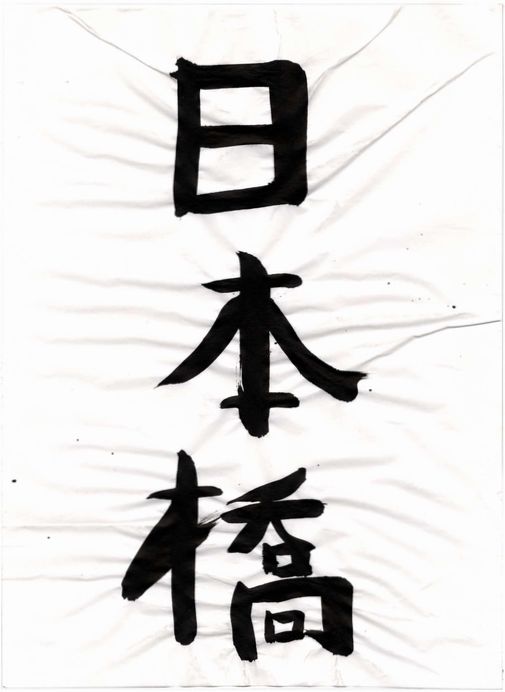 日本橋